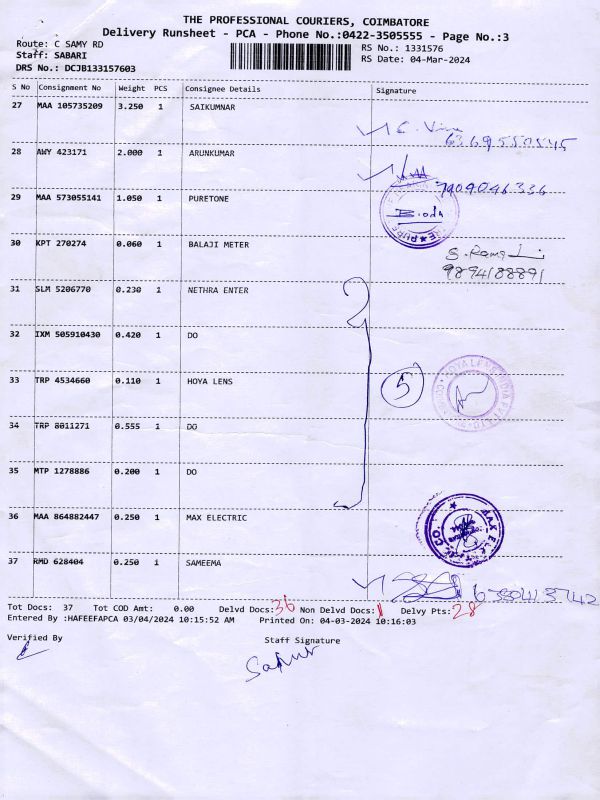 THE PROFESSIONAL COURIERS, COIMBATORE
Delivery Runsheet - PCA - Phone No.:0422-3505555 - Page No.:3
Route: C SAMY RD RS No.: 1331576
Staff: SABARI RS Date: 04-Mar-2024
DRS No.: DCJB133157603
S No Consignment No Weight PCS Consignee Details Signature
27 MAA 105735209 3.250 1 SAIKUMNAR
28 AWY 423171 2.000 1 ARUNKUMAR
7904046336
29 MAA 573055141 1.050 1 PURETONE
30 KPT 270274 0.060 1 BALAJI METER
9894188891
31 SLM 5206770 0.230 1 NETHRA ENTER
32 IXM 505910430 0.420 1 DO
33 TRP 4534660 0.110 1 HOYA LENS 5
34 TRP 8011271 0.555 1 DO
35 MTP 1278886 0.200 1 DO
36 MAA 864882447 0.250 1 MAX ELECTRIC
37 RMD 628404 0.250 1 SAMEEMA
Tot Docs: 37 Tot COD Amt: 0.00 Delvd Docs: 36 Non Delvd Docs: 1 Delvy Pts: 28
Entered By :HAFEEFAPCA 03/04/2024 10:15:52 AM Printed On: 04-03-2024 10:16:03
Verified By Staff Signature